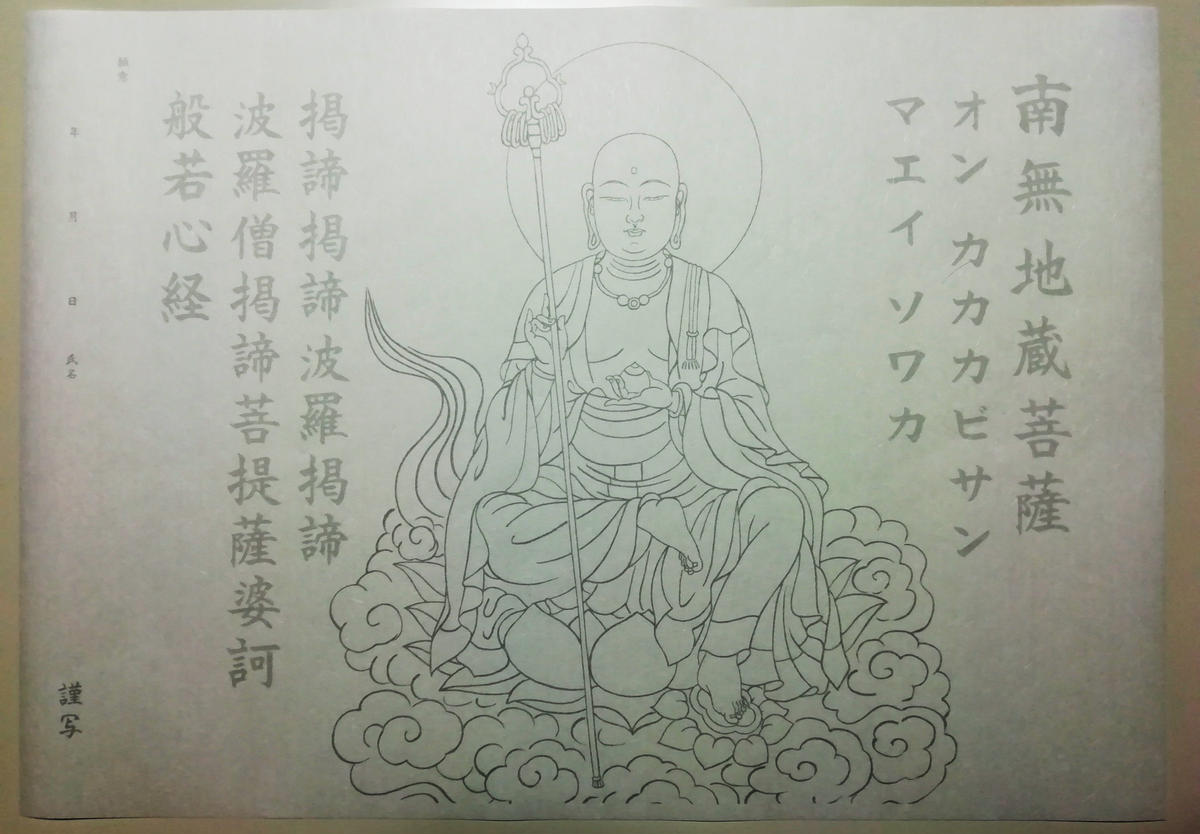 南無地蔵菩薩
オンカカカビサン
マエイソワカ
掲諦掲諦波羅掲諦
波羅僧掲諦菩提薩婆訶
般若心経
願意
年 月 日 氏名
謹写